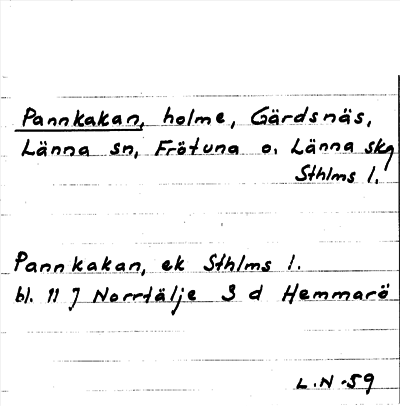 Pannkakan, holme, Gärdsnäs,
Länna sn, Frötuna o. Länna skg
Sthlms l.
Pannkakan, ek Sthlms l.
bl. 11 J Norrtälje 3 d Hemmarö
L.N -59